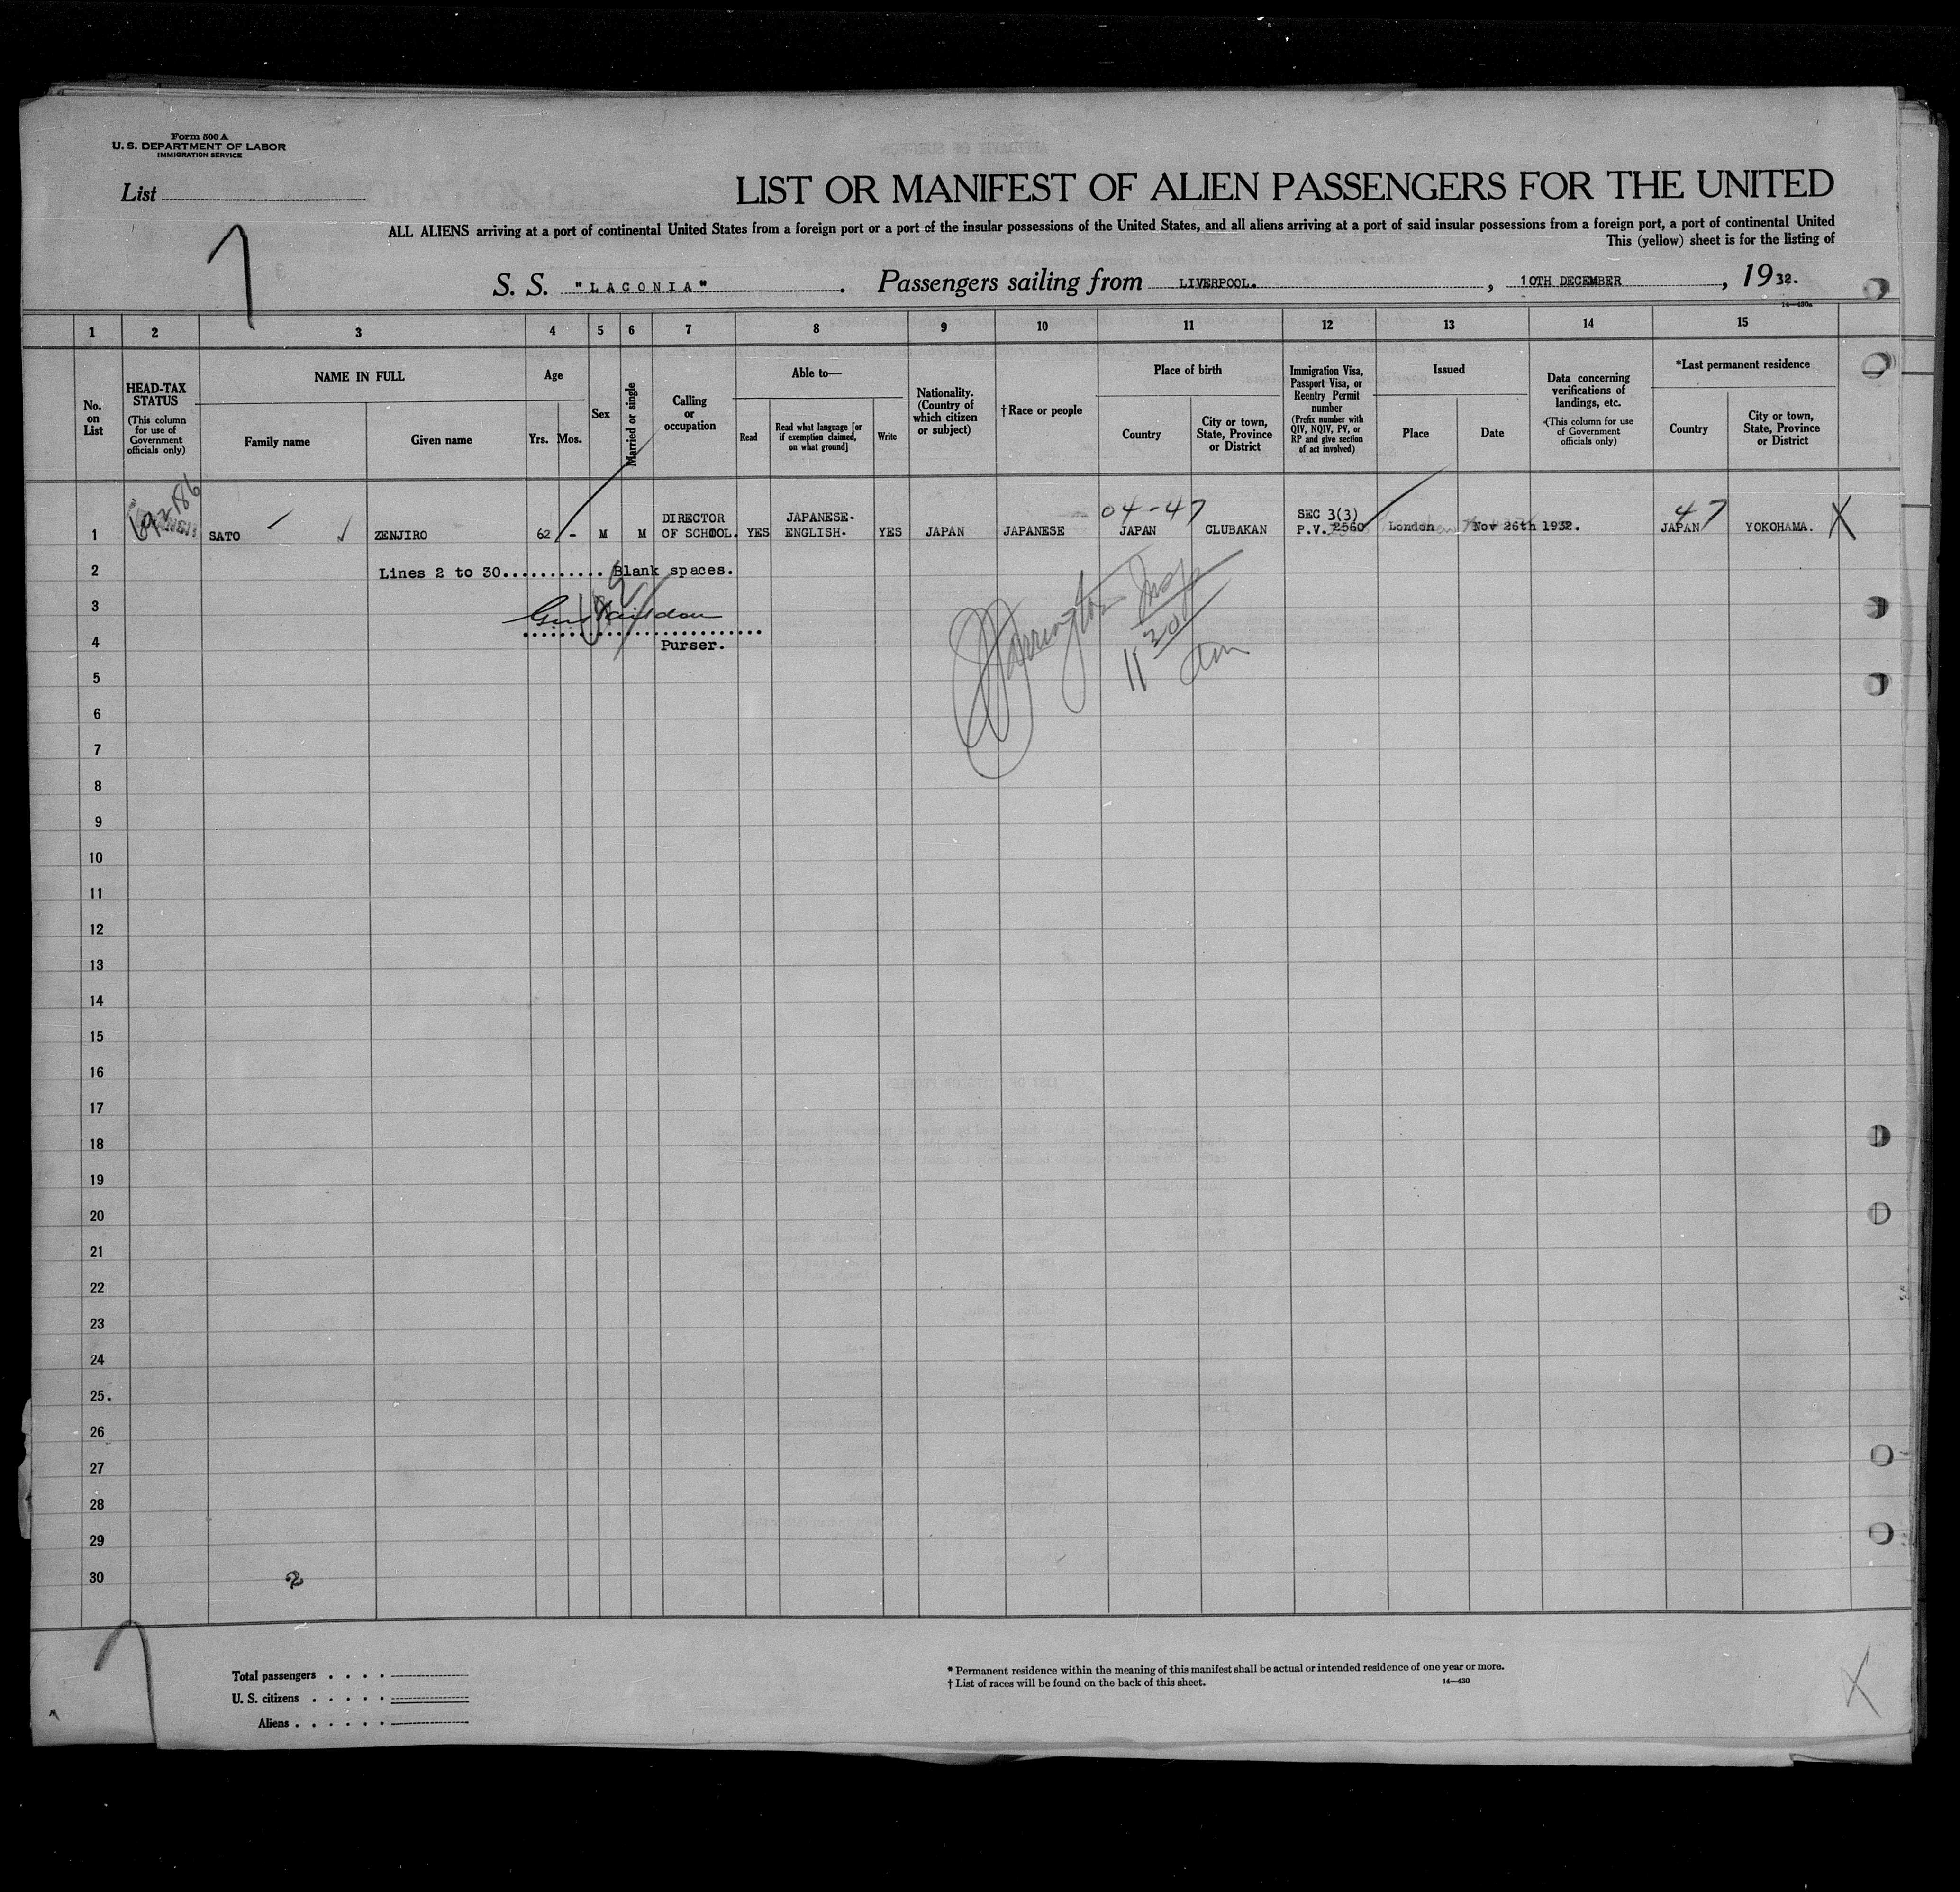 Form 500 A
U. S. DEPARTMENT OF LABOR
IMMIGRATION SERVICE
List
LIST OR MANIFEST OF ALIEN PASSENGERS FOR THE UNITED
ALL ALIENS arriving at a port of continental United States from a foreign port or a port of the insular possessions of the United States, and all aliens arriving at a port of said insular possessions from a foreign port, a port of continental United
This (yellow) sheet is for the listing of
7
S. S. "LACONIA". Passengers sailing from LIVERPOOL. , 10TH DECEMBER , 1932.
14—430a
1 2 3 4 5 6 7 8 9 10 11 12 13 14 15
No. on List
HEAD-TAX STATUS
(This column for use of Government officials only)
NAME IN FULL
Family name
Given name
Age
Yrs.
Mos.
Sex
Married or single
Calling or occupation
Able to—
Read
Read what language [or if exemption claimed, on what ground]
Write
Nationality. (Country of which citizen or subject)
†Race or people
Place of birth
Country
City or town, State, Province or District
Immigration Visa, Passport Visa, or Reentry Permit number
(Prefix number with QIV, NQIV, PV, or RP and give section of act involved)
Issued
Place
Date
Data concerning verifications of landings, etc.
(This column for use of Government officials only)
*Last permanent residence
Country
City or town, State, Province or District
04-47
47
1 SATO ZENJIRO 62 - M M DIRECTOR OF SCHOOL. YES JAPANESE. ENGLISH. YES JAPAN JAPANESE JAPAN CLUBAKAN SEC 3(3) P.V. 2560 London Nov 26th 1932. JAPAN YOKOHAMA. X
2 Lines 2 to 30........... Blank spaces.
3
4
Purser.
11 20 am
5
6
7
8
9
10
11
12
13
14
15
16
17
18
19
20
21
22
23
24
25.
26
27
28
29
30
2
7
Total passengers . . . .
U. S. citizens . . . . .
Aliens . . . . . .
* Permanent residence within the meaning of this manifest shall be actual or intended residence of one year or more.
† List of races will be found on the back of this sheet.
14—430
X